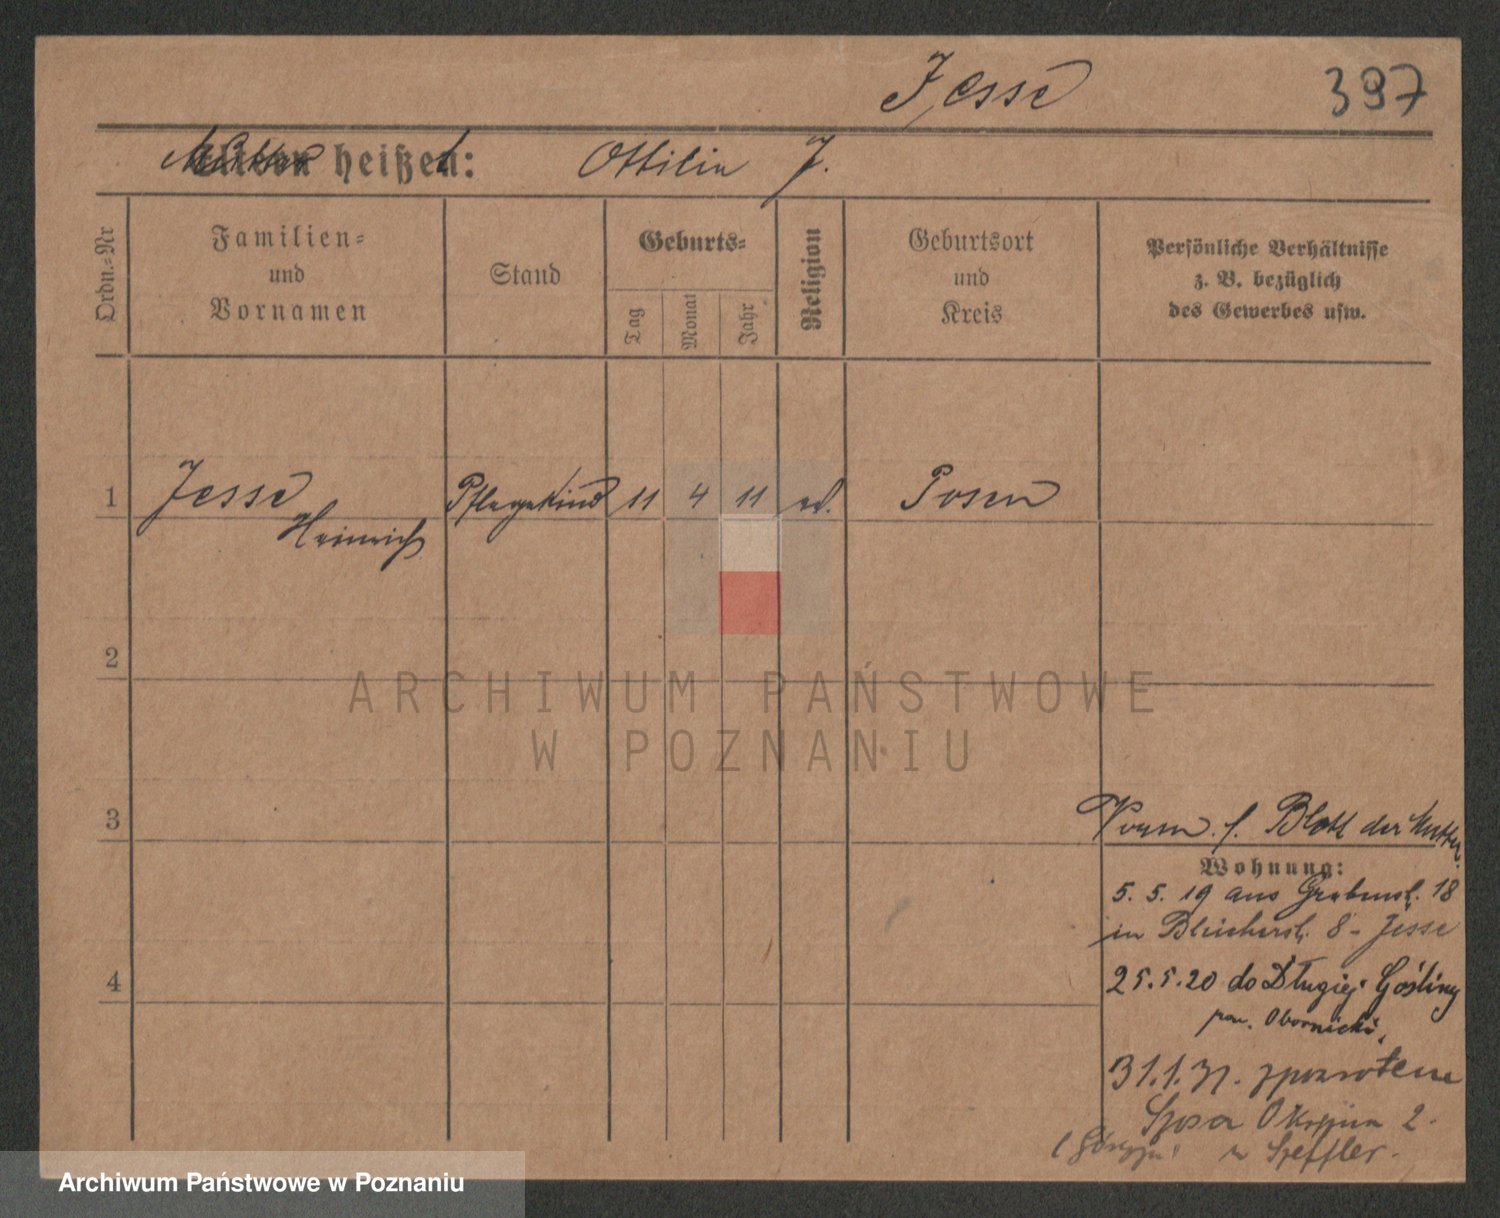 Jesse
397
Mutter heißt: Ottilie J.
Ordn.-Nr
Familien-
und
Vornamen
Stand
Geburts-
Tag
Monat
Jahr
Religion
Geburtsort
und
Kreis
Persönliche Verhältnisse
z. B. bezüglich
des Gewerbes usw.
1 Jesse Pflegekind 11 4 11 ev. Posen
Heinrich
2
3
4
ARCHIWUM PAŃSTWOWE
W POZNANIU
Blatt der Mutter.
Wohnung:
5. 5. 19 aus Grabenst. 18
in Bleicherst. 8 - Jesse
25.5.20 do Długiej Gośliny
pow. Obornicki
31.1.
2.
Archiwum Państwowe w Poznaniu